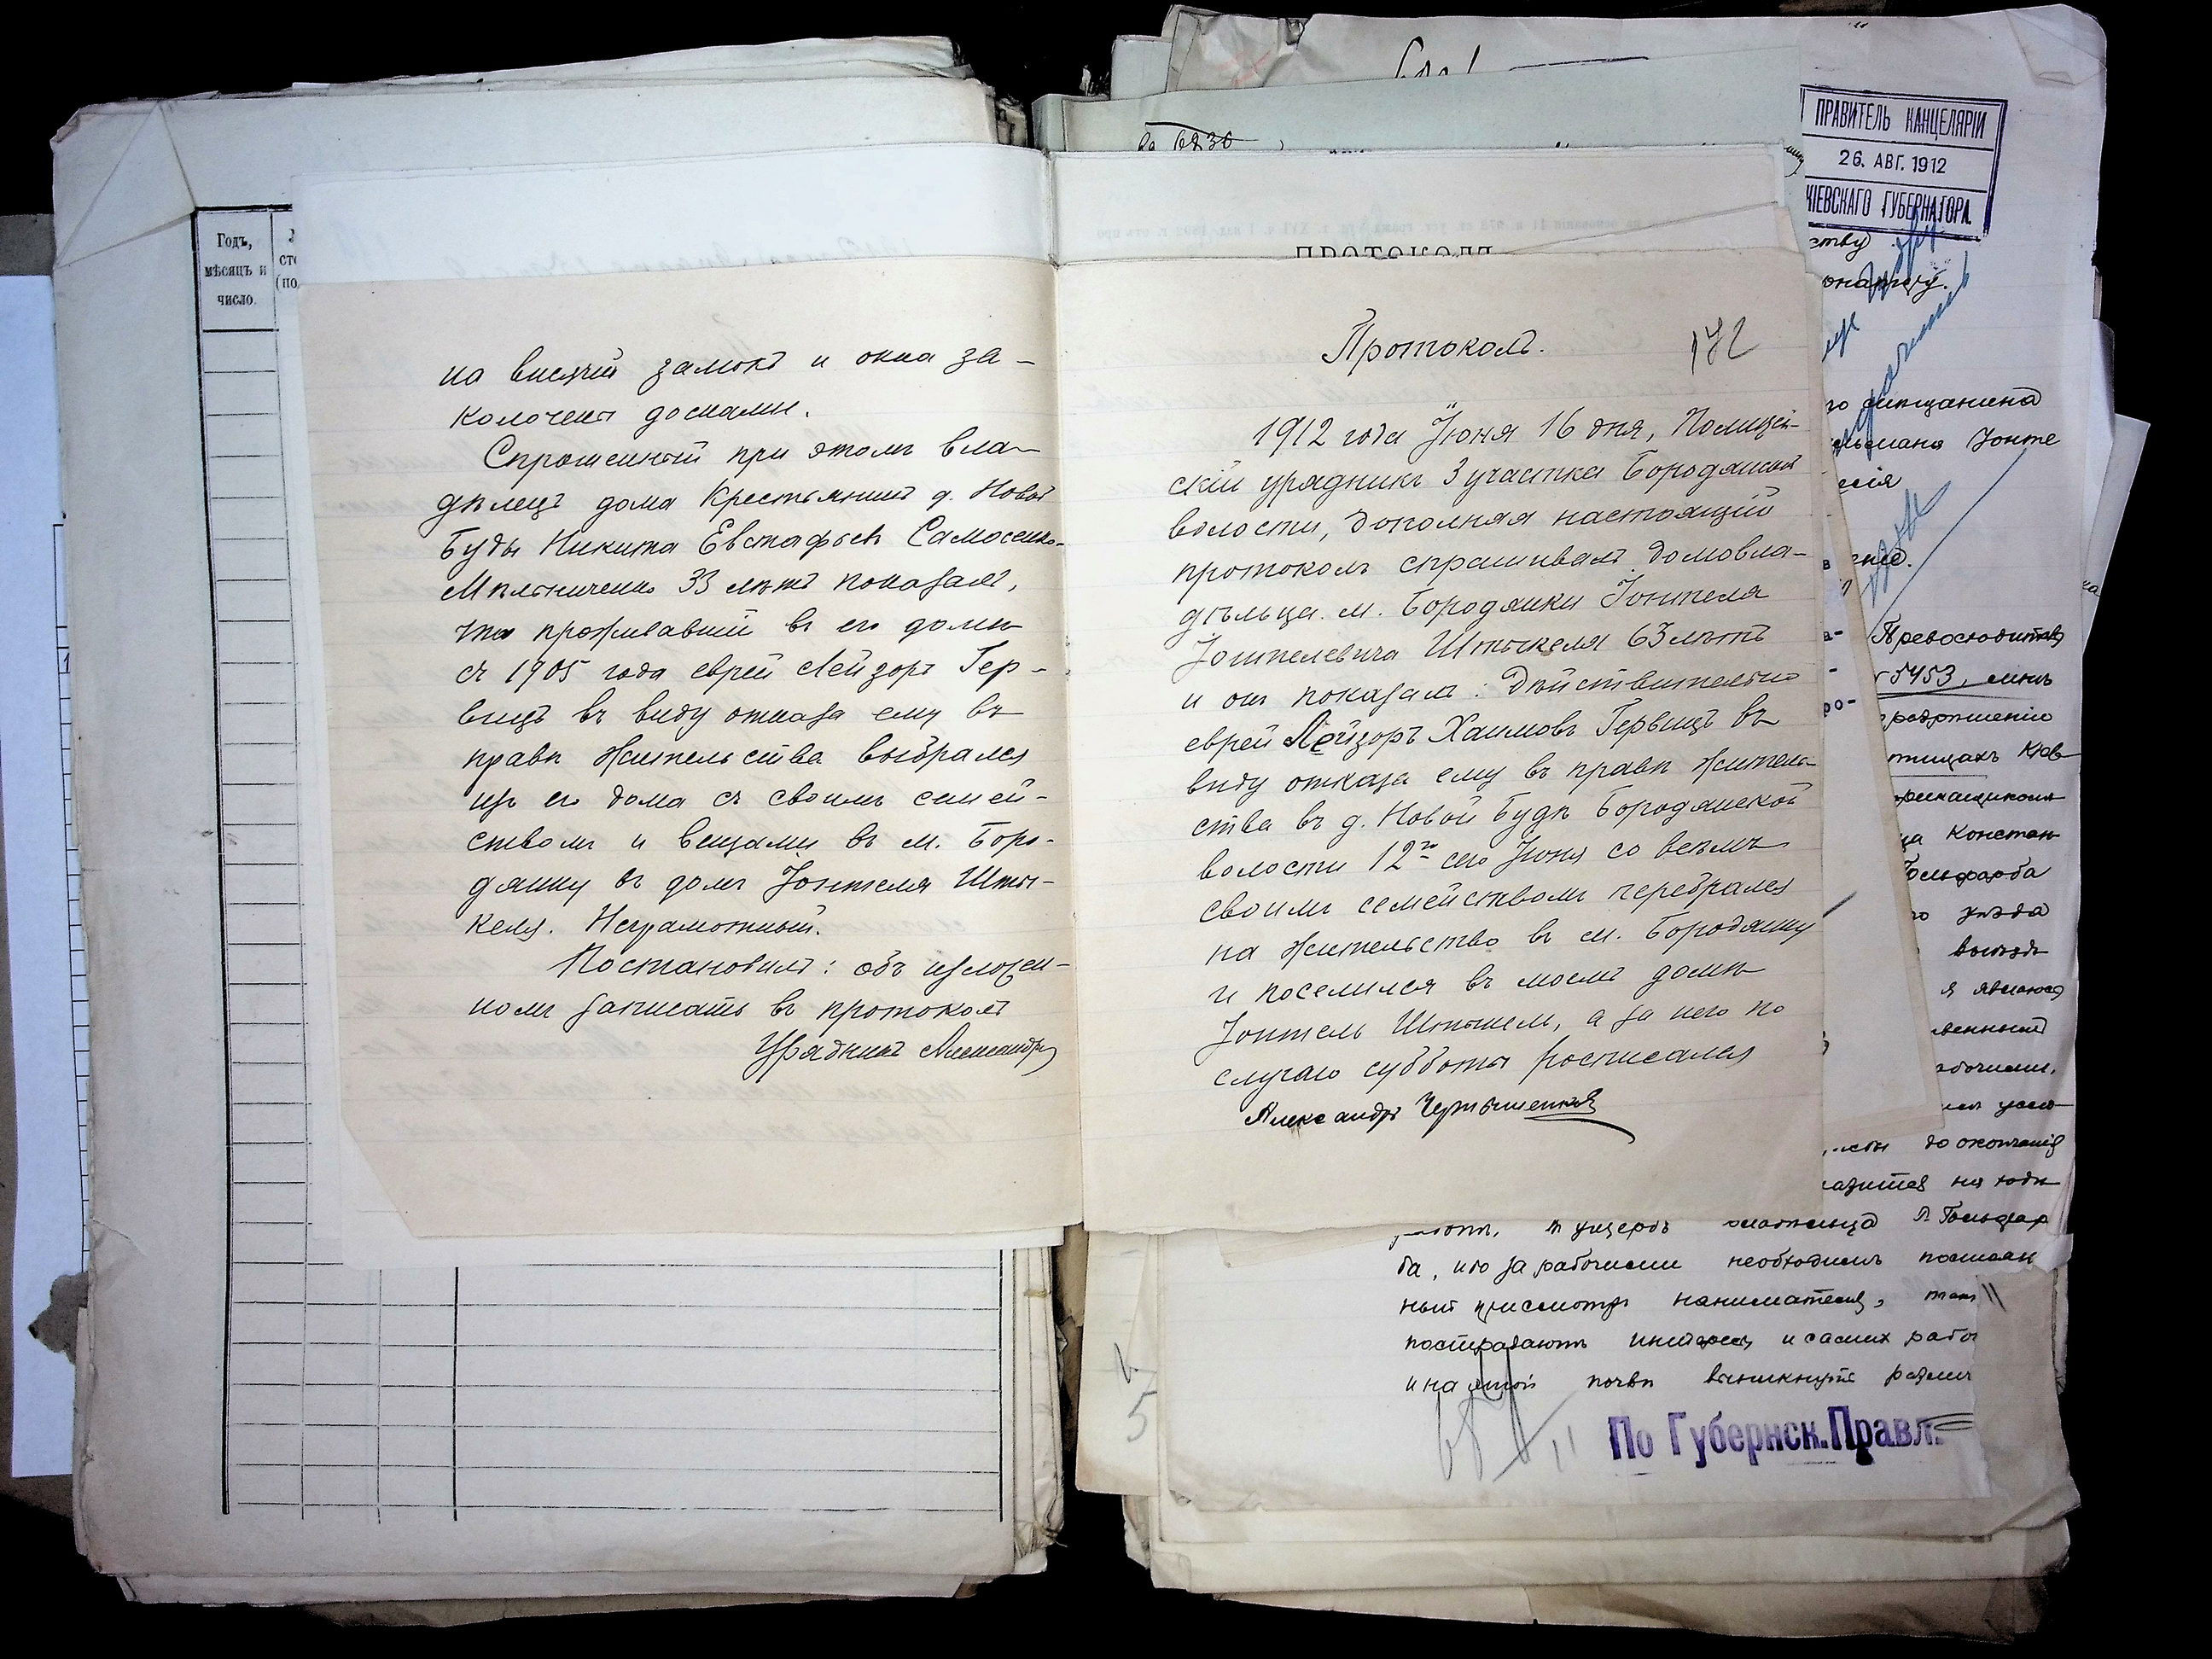 Годъ,
мѣсяцъ и
число.
на висячій замокъ и окна за-
колочены досками.
Спрошенный при этомъ вла-
дѣлецъ дома крестьянинъ д. Новой
Буды Никита Евстафьевъ Самосенко-
Мѣльниченко 33 лѣтъ показалъ,
что проживавшій въ его домѣ
съ 1905 года еврей Лейзоръ Гер-
вицъ въ виду отказа ему въ
правѣ жительства выбрался
изъ его дома съ своимъ семей-
ствомъ и вещами въ м. Боро-
дянку въ домъ Іонтеля Шты-
келя. Неграмотный.
Постановилъ: объ изложен-
номъ записать въ протоколъ
Урядникъ
ПРОТОКОЛЪ
Протоколъ.
172
1912 года Іюня 16 дня, Полицей-
скій урядникъ 3 участка Бородянской
волости, дополняя настоящій
протоколъ спрашивалъ домовла-
дѣльца м. Бородянки Іонтеля
Іонтелевича Штыкеля 63 лѣтъ
и онъ показалъ: Дѣйствительно
еврей Лейзоръ Хаимовъ Гервицъ въ
виду отказа ему въ правѣ житель-
ства въ д. Новой Будѣ Бородянской
волости 12го сего Іюня со всѣмъ
своимъ семействомъ перебрался
на жительство въ м. Бородянку
и поселился въ моемъ домѣ
Іонтель Штыкель, а за него по
случаю субботы росписался
Александръ Чернышенко
ПРАВИТЕЛЬ КАНЦЕЛЯРІИ
26. АВГ. 1912
КІЕВСКАГО ГУБЕРНАТОРА.
ству
го мѣщанина
Превосходитв
5453, мнѣ
Констан
Гольдфарба
го уѣзда
я являюсь
до окончанія
ущербъ Гольдфар
ба, ибо за рабочими необходимъ постоян
ный присмотръ нанимателя,
пострадаютъ интересы и самих рабо
и на этой почвѣ возникнутъ
По Губернск. Правл.
5